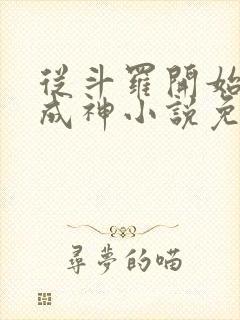 從斗羅開始
成神小說免
尋夢的喵